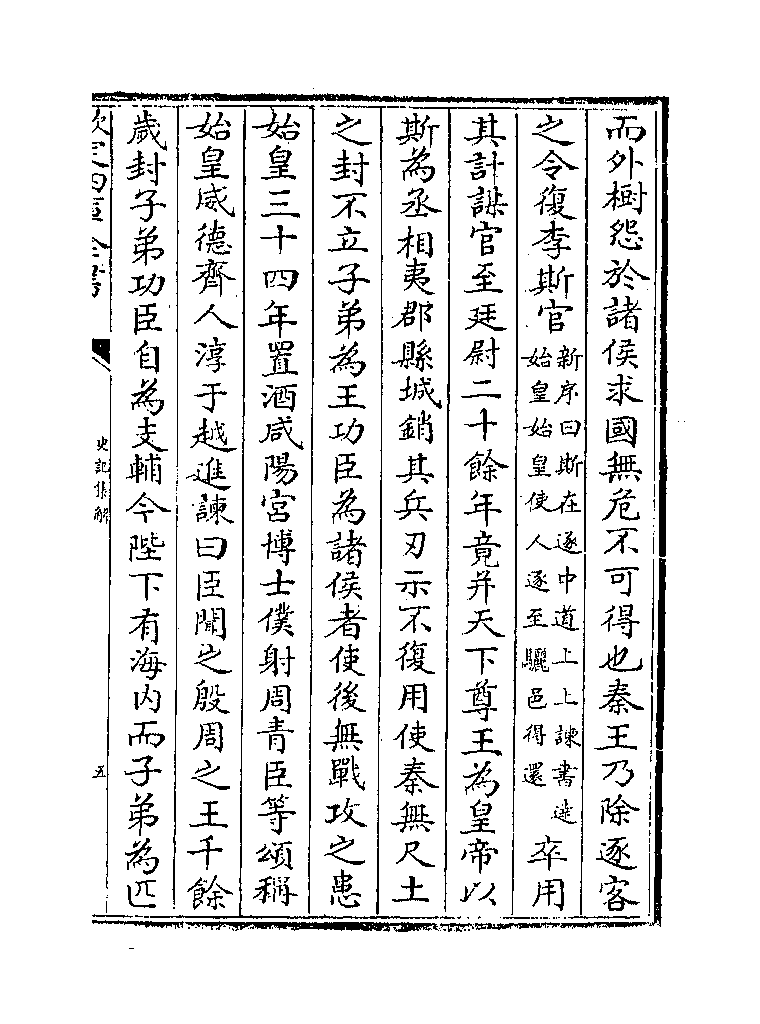 而外樹怨於諸侯求國無危不可得也秦王乃除逐客
之令復李斯官新序曰斯在逐中道上上諫書達始皇始皇使人逐至驪邑得還卒用
其計謀官至廷尉二十餘年竟并天下尊王為皇帝以
斯為丞相夷郡縣城銷其兵刃示不復用使秦無尺土
之封不立子弟為王功臣為諸侯者使後無戰攻之患
始皇三十四年置酒咸陽宮博士僕射周青臣等頌稱
始皇威德齊人淳于越進諫曰臣聞之殷周之王千餘
歲封子弟功臣自為支輔今陛下有海内而子弟為匹
欽定四庫全書
史記集解
五